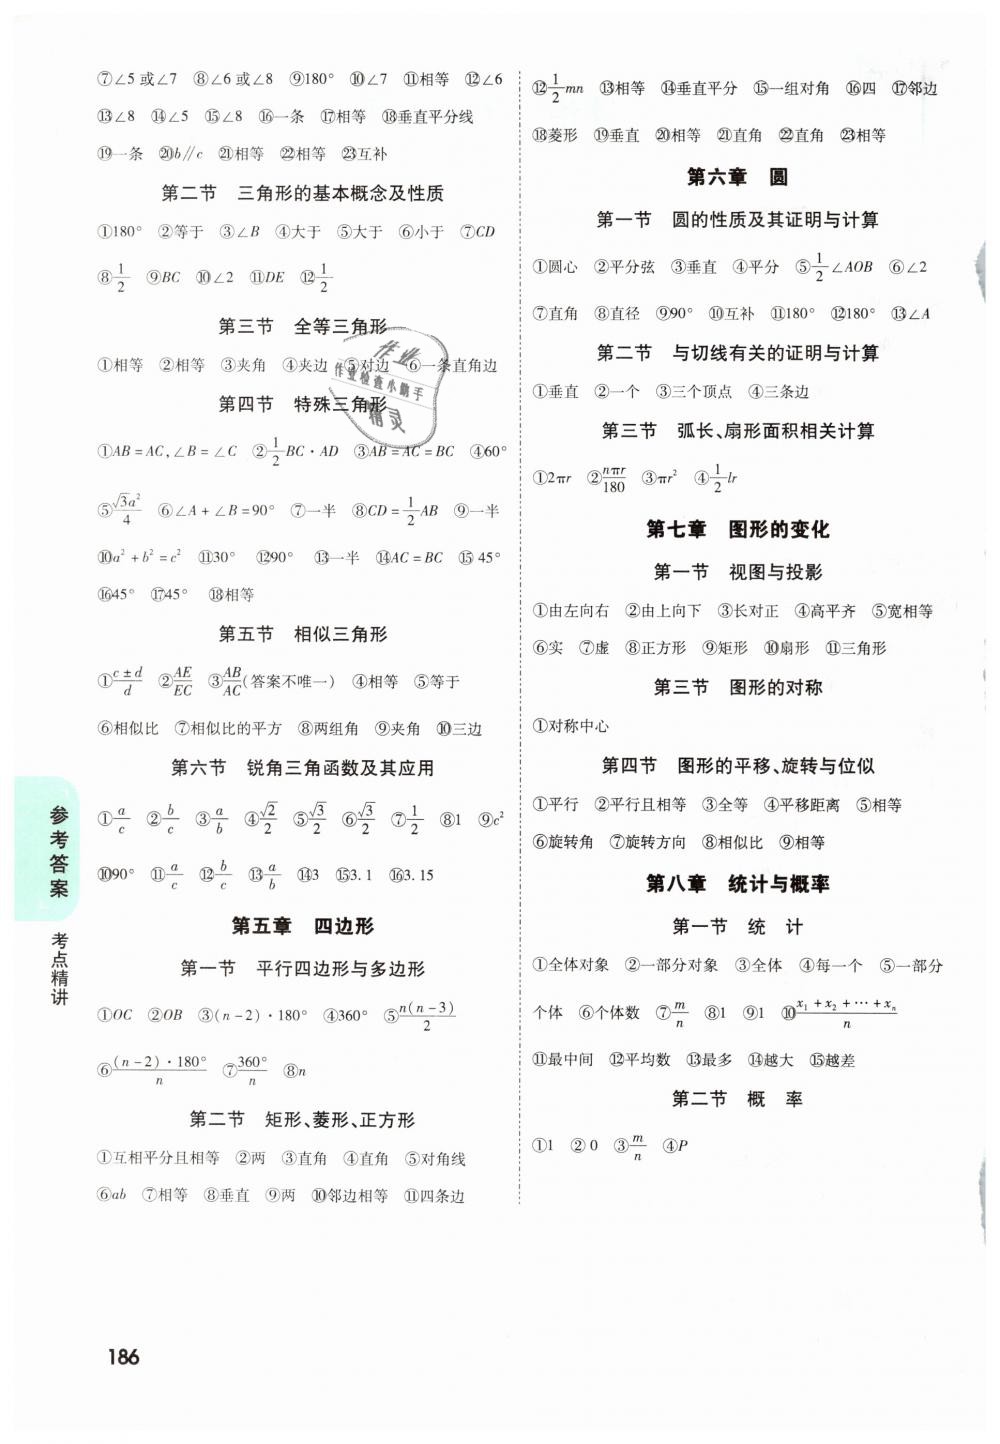 ⑦∠5或∠7 ⑧∠6或∠8 ⑨180° ⑩∠7 ⑪相等 ⑫∠6
⑬∠8 ⑭∠5 ⑮∠8 ⑯一条 ⑰相等 ⑱垂直平分线
⑲一条 ⑳b∥c ㉑相等 ㉒相等 ㉓互补
第二节 三角形的基本概念及性质
①180° ②等于 ③∠B ④大于 ⑤大于 ⑥小于 ⑦CD
⑧1/2 ⑨BC ⑩∠2 ⑪DE ⑫1/2
第三节 全等三角形
①相等 ②相等 ③夹角 ④夹边 ⑤对边 ⑥一条直角边
第四节 特殊三角形
①AB=AC,∠B=∠C ②1/2BC·AD ③AB=AC=BC ④60°
⑤√3a²/4 ⑥∠A+∠B=90° ⑦一半 ⑧CD=1/2AB ⑨一半
⑩a²+b²=c² ⑪30° ⑫90° ⑬一半 ⑭AC=BC ⑮45°
⑯45° ⑰45° ⑱相等
第五节 相似三角形
①c±d/d ②AE/EC ③AB/AC(答案不唯一) ④相等 ⑤等于
⑥相似比 ⑦相似比的平方 ⑧两组角 ⑨夹角 ⑩三边
第六节 锐角三角函数及其应用
①a/c ②b/c ③a/b ④√2/2 ⑤√3/2 ⑥√3/2 ⑦1/2 ⑧1 ⑨c²
⑩90° ⑪a/c ⑫b/c ⑬a/b ⑭3 ⑮3.1 ⑯3.15
第五章 四边形
第一节 平行四边形与多边形
①OC ②OB ③(n-2)·180° ④360° ⑤n(n-3)/2
⑥(n-2)·180°/n ⑦360°/n ⑧n
第二节 矩形、菱形、正方形
①互相平分且相等 ②两 ③直角 ④直角 ⑤对角线
⑥ab ⑦相等 ⑧垂直 ⑨两 ⑩邻边相等 ⑪四条边
⑫1/2mn ⑬相等 ⑭垂直平分 ⑮一组对角 ⑯四 ⑰邻边
⑱菱形 ⑲垂直 ⑳相等 ㉑直角 ㉒直角 ㉓相等
第六章 圆
第一节 圆的性质及其证明与计算
①圆心 ②平分弦 ③垂直 ④平分 ⑤1/2∠AOB ⑥∠2
⑦直角 ⑧直径 ⑨90° ⑩互补 ⑪180° ⑫180° ⑬∠A
第二节 与切线有关的证明与计算
①垂直 ②一个 ③三个顶点 ④三条边
第三节 弧长、扇形面积相关计算
①2πr ②nπr/180 ③πr² ④1/2lr
第七章 图形的变化
第一节 视图与投影
①由左向右 ②由上向下 ③长对正 ④高平齐 ⑤宽相等
⑥实 ⑦虚 ⑧正方形 ⑨矩形 ⑩扇形 ⑪三角形
第三节 图形的对称
①对称中心
第四节 图形的平移、旋转与位似
①平行 ②平行且相等 ③全等 ④平移距离 ⑤相等
⑥旋转角 ⑦旋转方向 ⑧相似比 ⑨相等
第八章 统计与概率
第一节 统 计
①全体对象 ②一部分对象 ③全体 ④每一个 ⑤一部分
个体 ⑥个体数 ⑦m/n ⑧1 ⑨1 ⑩x₁+x₂+…+xₙ/n
⑪最中间 ⑫平均数 ⑬最多 ⑭越大 ⑮越差
第二节 概 率
①1 ②0 ③m/n ④P
参考答案
考点精讲
186
作业
作业检查小助手
精灵